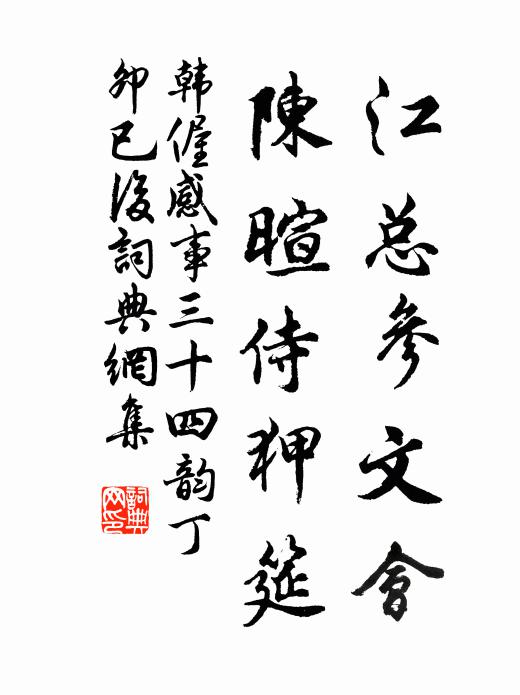 江总參文會
陳暄侍狎筵
韩偓感事三十四韵丁
卯已後詞典網集
詞典网印